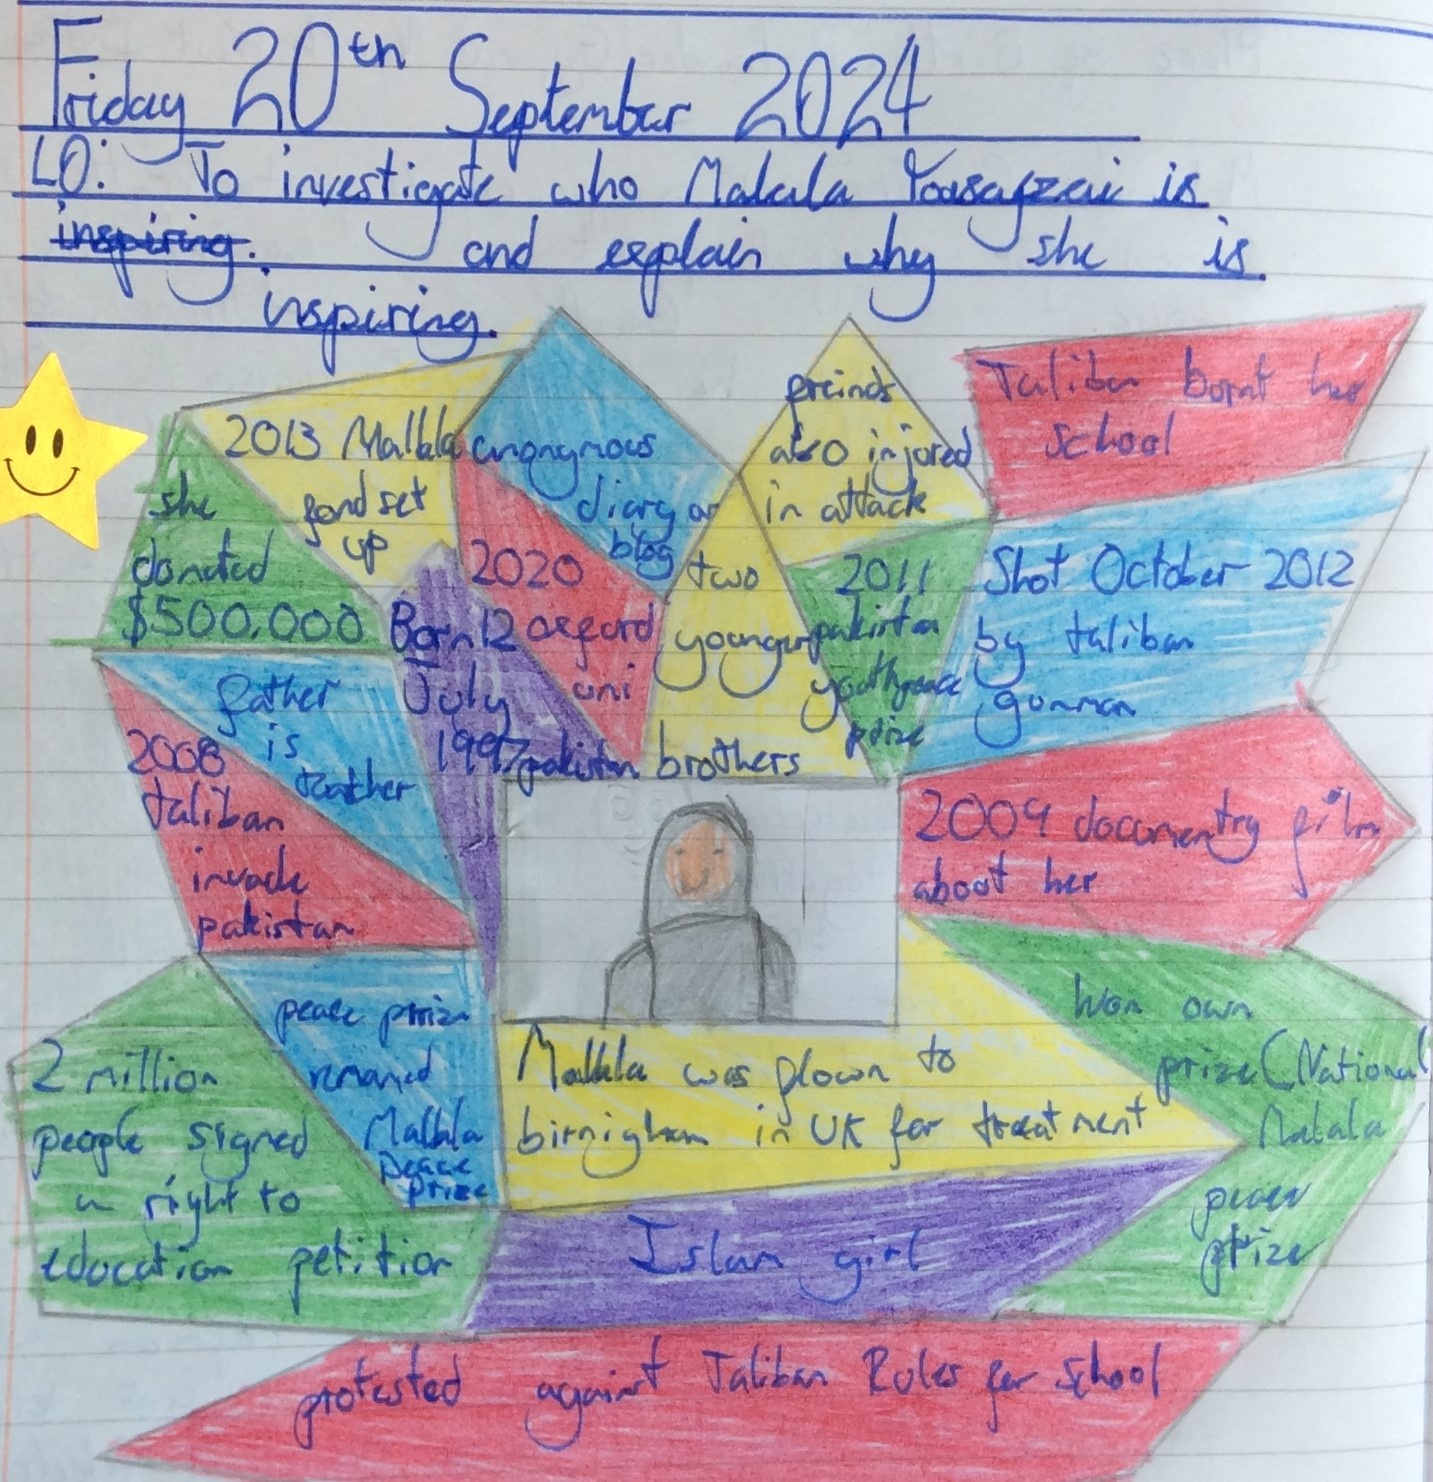 Friday 20th September 2024
LO: To investigate who Malala Yousafzai is
inspiring. and explain why she is
inspiring.
2013 Malala
fund set
up
anonymous
diary or
blog
freinds
also injured
in attack
Taliban burnt her
school
she
donated
$500.000
2020
oxford
uni
two
younger
brothers
2011
pakistan
youth peace
prize
Shot October 2012
by taliban
gunman
Born 12
July
1997 pakistan
father
is
teacher
2008
taliban
invade
pakistan
2009 documentry film
about her
peace prize
renamed
Malala
peace
prize
2 million
people signed
a right to
education petition
Malala was flown to
birnigham in UK for treatment
Won own
prize (National
Malala
peace
prize
Islam girl
protested against Taliban Rules for school